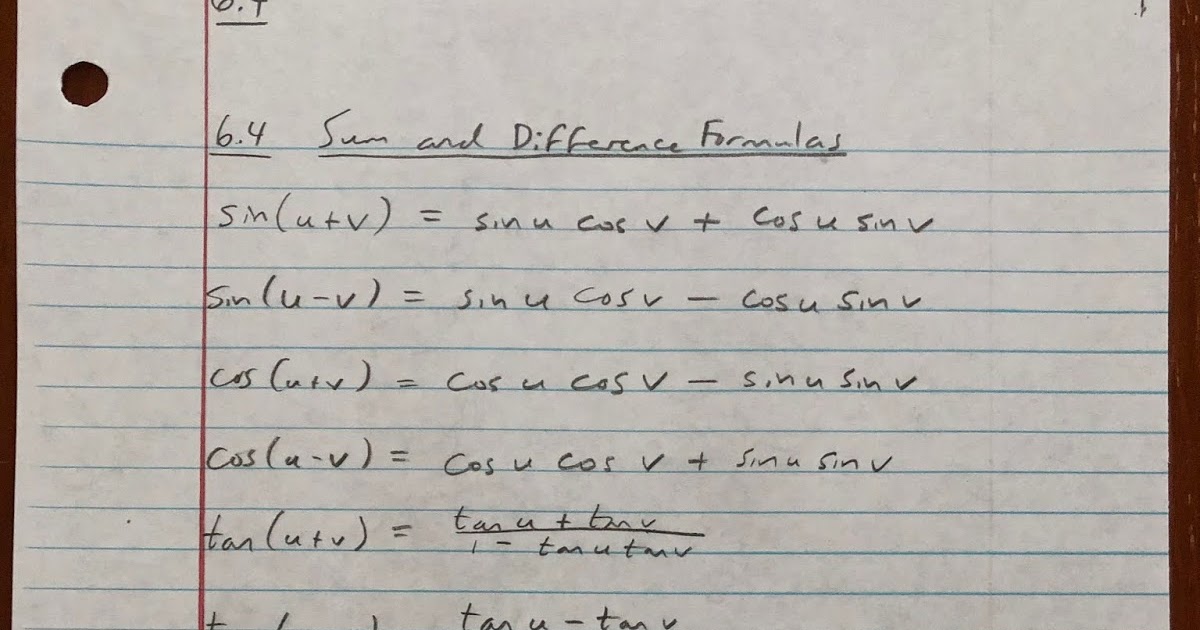 6.4
6.4 Sum and Difference Formulas
sin(u+v) = sin u cos v + cos u sin v
sin(u-v) = sin u cos v - cos u sin v
cos(u+v) = cos u cos v - sin u sin v
cos(u-v) = cos u cos v + sin u sin v
tan(u+v) = tan u + tan v
1 - tan u tan v
tan u - tan v